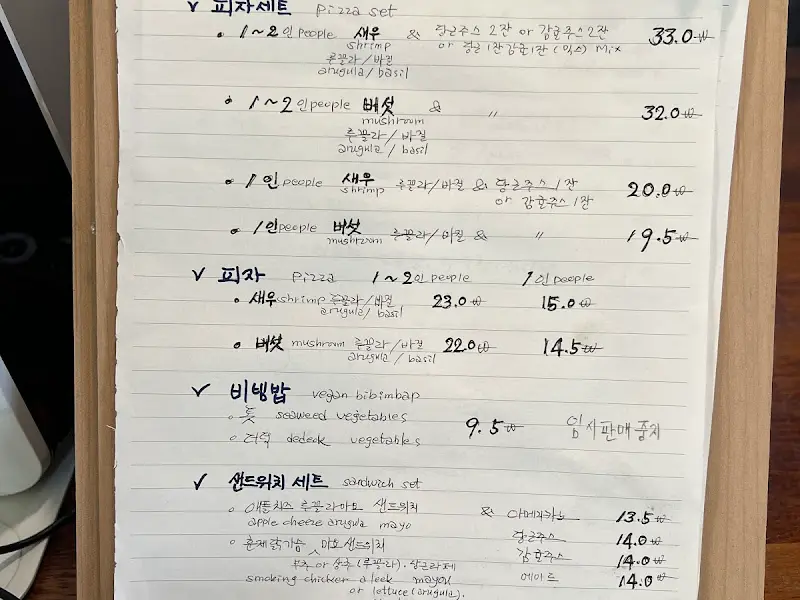 ✓ 피자세트 pizza set
• 1~2인people 새우 & 당근주스 2잔 or 감귤주스2잔 33.0₩
shrimp or 당근1잔감귤1잔 (믹스) Mix
루꼴라/바질
arugula/basil
• 1~2인people 버섯 & 〃 32.0₩
mushroom
루꼴라/바질
arugula/basil
• 1인people 새우 루꼴라/바질 & 당근주스 1잔 20.0₩
shrimp or 감귤주스 1잔
• 1인people 버섯 루꼴라/바질 & 〃 19.5₩
mushroom
✓ 피자 pizza 1~2인people 1인people
• 새우shrimp 루꼴라/바질 23.0₩ 15.0₩
arugula/basil
• 버섯 mushroom 루꼴라/바질 22.0₩ 14.5₩
arugula/basil
✓ 비빔밥 vegan bibimbap
• 톳 seaweed vegetables 9.5₩ 임시판매중지
• 더덕 dedeok vegetables
✓ 샌드위치 세트 sandwich set
• 애플치즈 루꼴라마요 샌드위치 & 아메리카노 13.5₩
apple cheeze arugula mayo 당근주스 14.0₩
• 훈제닭가슴 마요샌드위치 감귤주스 14.0₩
부추 or 상추(루꼴라). 당근라페 에이드 14.0₩
smoking chicken a leek mayou
or lettuce(arugula).